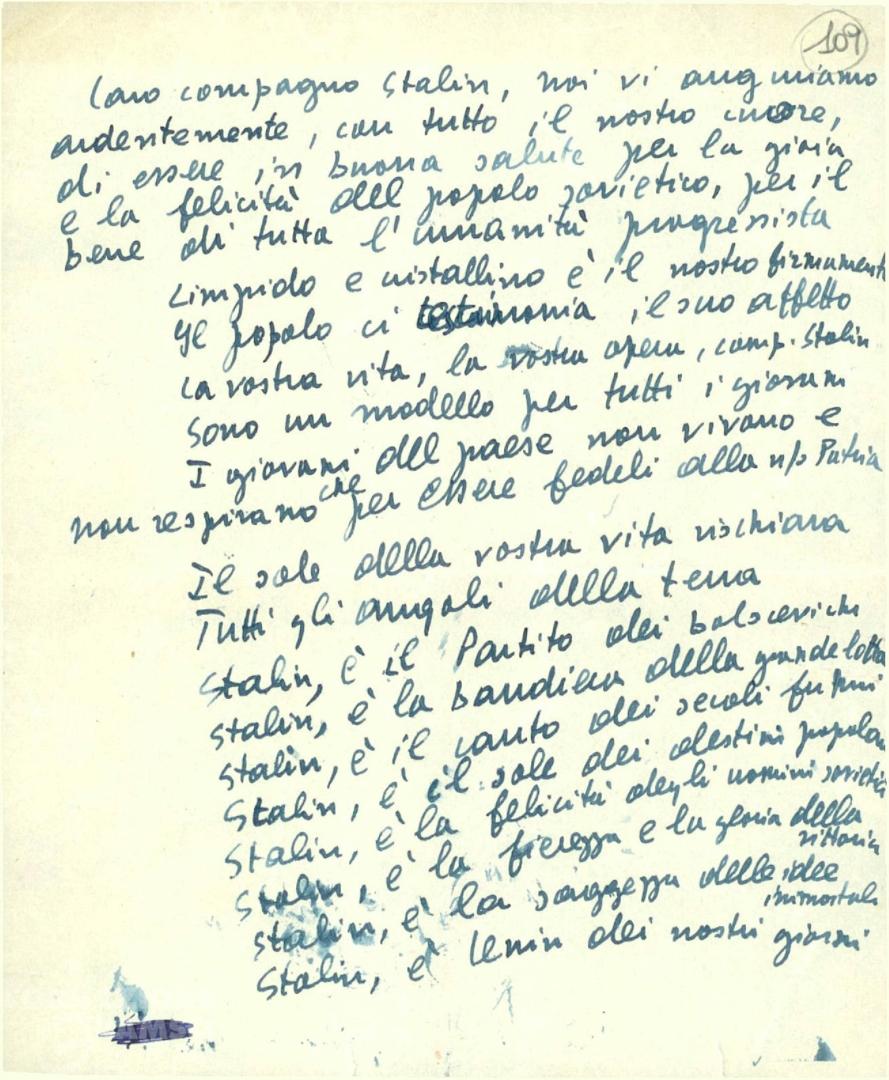 109
Caro compagno Stalin, noi vi auguriamo
ardentemente, con tutto il nostro cuore,
di essere in buona salute per la gioia
e la felicità del popolo sovietico, per il
bene di tutta l'umanità progressista
Limpido e cristallino è il nostro firmamento
Il popolo ci testimonia il suo affetto
La vostra vita, la vostra opera, comp. Stalin
Sono un modello per tutti i giovani
I giovani del paese non vivono e
non respirano che per essere fedeli alla n/s Patria
Il sole della vostra vita rischiara
Tutti gli angoli della terra
Stalin, è il Partito dei bolscevichi
Stalin, è la bandiera della grande lotta
Stalin, è il canto dei secoli futuri
Stalin, è il sole dei destini popolari
Stalin, è la felicità degli uomini sovietici
Stalin, è la fierezza e la gloria della vittoria
Stalin, è la saggezza delle idee immortali
Stalin, è Lenin dei nostri giorni